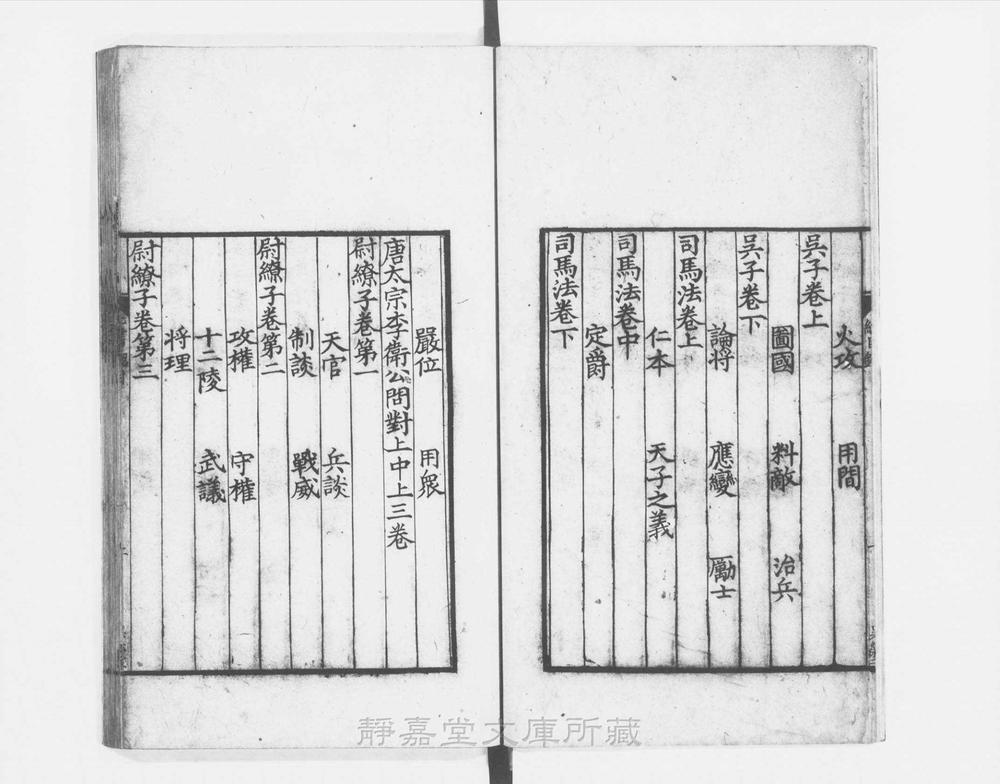 火攻 用間
吳子卷上
圖國 料敵 治兵
吳子卷下
論将 應變 勵士
司馬法卷上
仁本 天子之義
司馬法卷中
定爵
司馬法卷下
嚴位 用衆
唐太宗李衛公問對上中上三卷
尉繚子卷第一
天官 兵談
制談 戰威
尉繚子卷第二
攻權 守權
十二陵 武議
将理
尉繚子卷第三
靜嘉堂文庫所藏